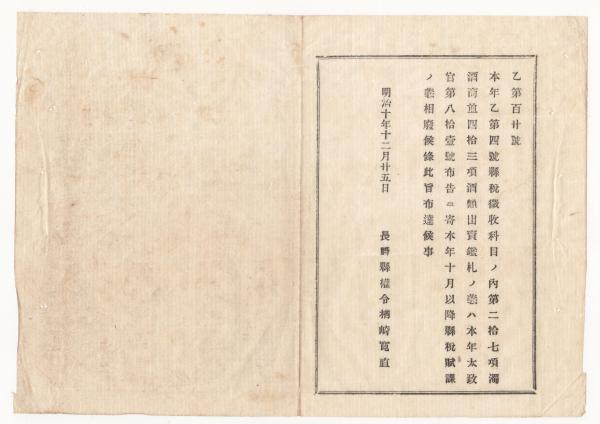 乙第百廿號
本年乙第四號縣稅徵收科目ノ內第二拾七項濁
酒商並四拾三項酒類出賣鑑札ノ義ハ本年太政
官第八拾壹號布告ニ寄本年十月以降縣稅賦課
ノ義相廢候條此旨布達候事
明治十年十二月廿五日
長崎縣權令 崎寬直